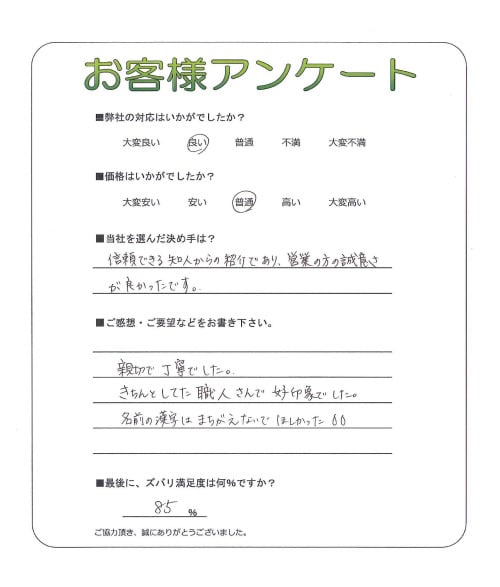 お客様アンケート
■弊社の対応はいかがでしたか?
大変良い 良い 普通 不満 大変不満
■価格はいかがでしたか?
大変安い 安い 普通 高い 大変高い
■当社を選んだ決め手は?
信頼できる知人からの紹介であり、営業の方の誠意さ
が良かったです。
■ご感想・ご要望などをお書き下さい。
親切で丁寧でした。
きちんとしてた職人さんで好印象でした。
名前の漢字はまちがえないでほしかった
■最後に、ズバリ満足度は何%ですか?
85 %
ご協力頂き、誠にありがとうございました。